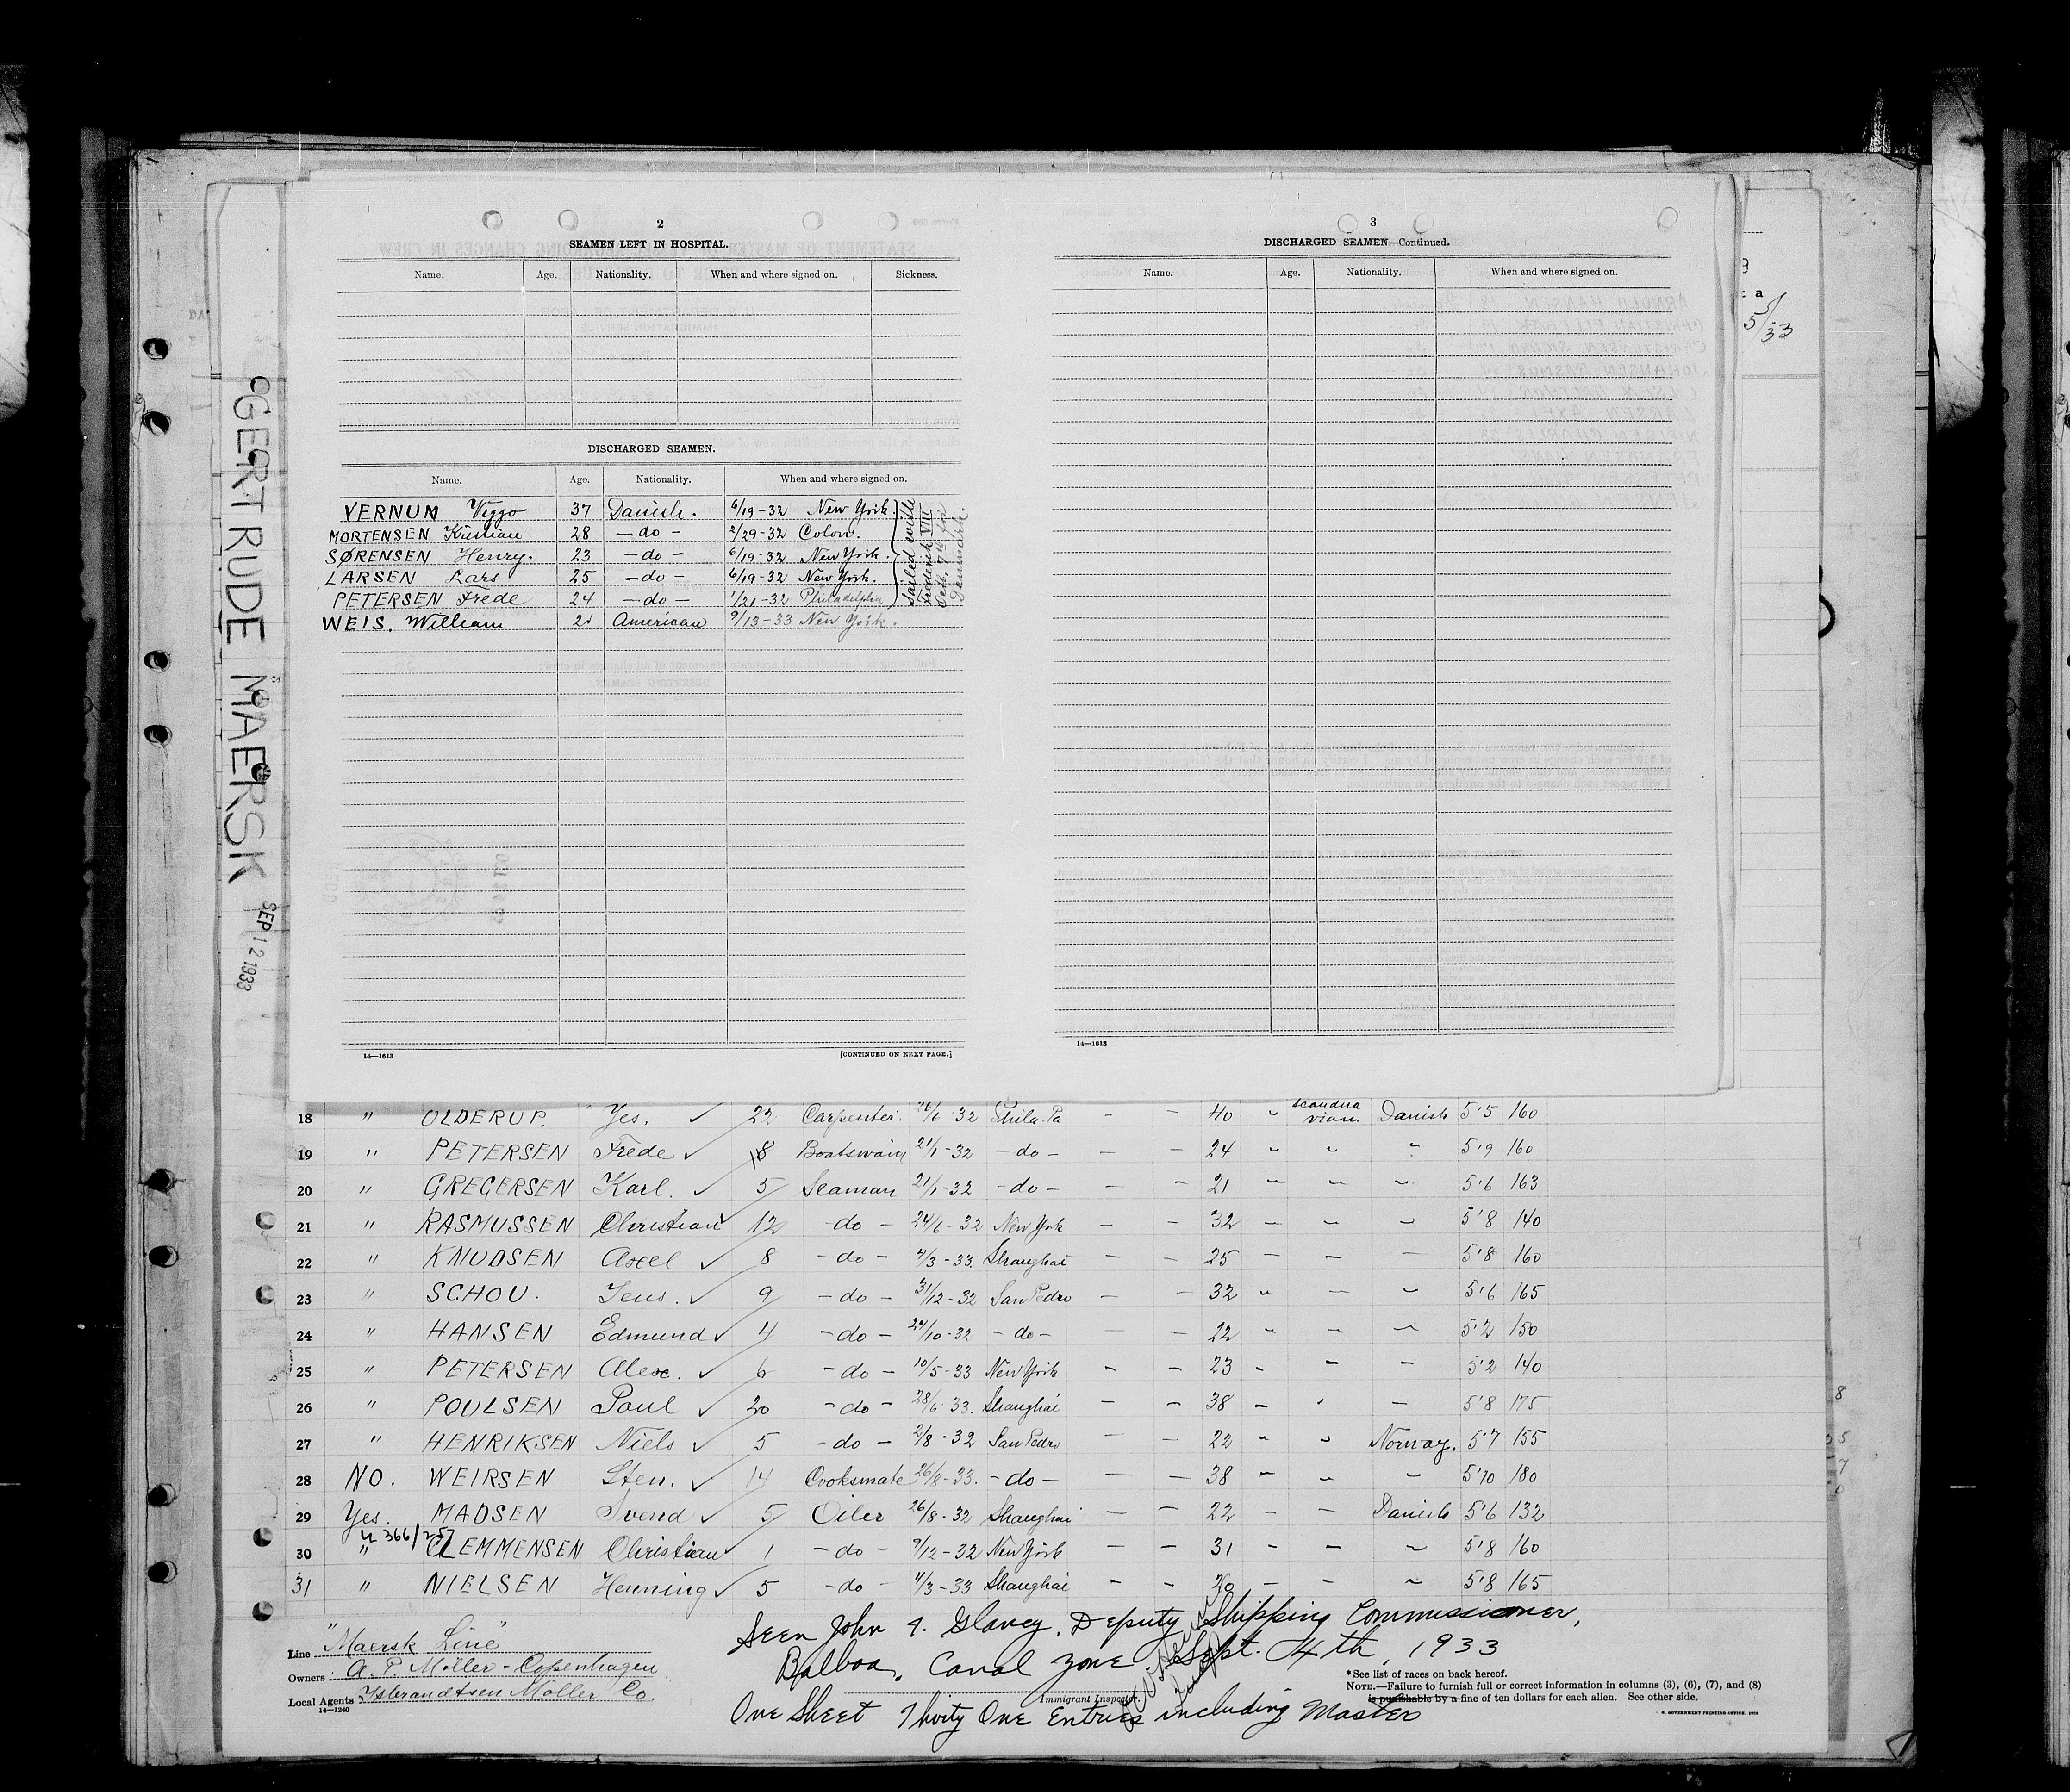 2
SEAMEN LEFT IN HOSPITAL.
Name. Age. Nationality. When and where signed on. Sickness.
DISCHARGED SEAMEN.
Name. Age. Nationality. When and where signed on.
VERNUM Viggo 37 Danish. 6/19-32 New York.
MORTENSEN Kristian 28 —do— 2/29-32 Colon.
SØRENSEN Henry. 23 —do— 6/19-32 New York.
LARSEN Lars 25 —do— 6/19-32 New York.
PETERSEN Frede 24 —do— 1/21-32 Philadelphia
WEIS. William 21 American 9/13-33 New York.
Sailed with
Frederik VIII
for
Denmark.
14—1613 [CONTINUED ON NEXT PAGE.]
3
DISCHARGED SEAMEN—Continued.
Name. Age. Nationality. When and where signed on.
14—1613
a
5/33
GERTRUDE MAERSK SEP 12 1933
18 " OLDERUP. Yes. ✓ 22 Carpenter. 32 Phila. Pa - - 40 " Scandina vian. Danish 5'5 160
19 " PETERSEN Frede ✓ 8 Boatswain 21/1-32 -do- - - 24 " " " 5'9 160
20 " GREGERSEN Karl. ✓ 5 Seaman 21/1-32 -do- - - 21 " " " 5'6 163
21 " RASMUSSEN Christian ✓ 12 -do- 24/6-32 New York - - 32 - - - 5'8 140
22 " KNUDSEN Axel ✓ 8 -do- 4/3-33 Shanghai - - 25 - - - 5'8 160
23 " SCHOU. Jens. ✓ 9 -do- 31/12-32 San Pedro - - 32 " - " 5'6 165
24 " HANSEN Edmund ✓ 4 -do- 24/10-32 -do- - - 22 " - " 5'2 150
25 " PETERSEN Alex. ✓ 6 -do- 10/5-33 New York - - 23 - - - 5'2 140
26 " POULSEN Poul ✓ 20 -do- 28/6-33. Shanghai - - 38 - ' - 5'8 175
27 " HENRIKSEN Niels ✓ 5 -do- 2/8-32 San Pedro - - 22 " " Norway. 5'7 155
28 NO. WEIRSEN Sten. ✓ 14 Cooksmate 26/8-33. -do- - - 38 " " " 5'10 180
29 Yes. MADSEN Svend ✓ 5 Oiler 26/8-32 Shanghai - - 22 - - Danish 5'6 132
366/257
30 " CLEMMENSEN Christian ✓ 1 -do- 9/12-32 New York - - 31 - - " 5'8 160
31 " NIELSEN Henning ✓ 5 -do- 4/3-33 Shanghai - - 20 - - " 5'8 165
Seen John Glancy, Deputy Shipping Commissioner,
Balboa, Canal Zone Sept. 4th, 1933
Immigrant Inspector.
One Sheet Thirty One Entries including Master
Line "Maersk Line"
Owners A. P. Möller - Copenhagen
Local Agents Isbrandtsen Möller Co.
14—1240
*See list of races on back hereof.
NOTE.—Failure to furnish full or correct information in columns (3), (6), (7), and (8)
is punishable by a fine of ten dollars for each alien. See other side.
GOVERNMENT PRINTING OFFICE.